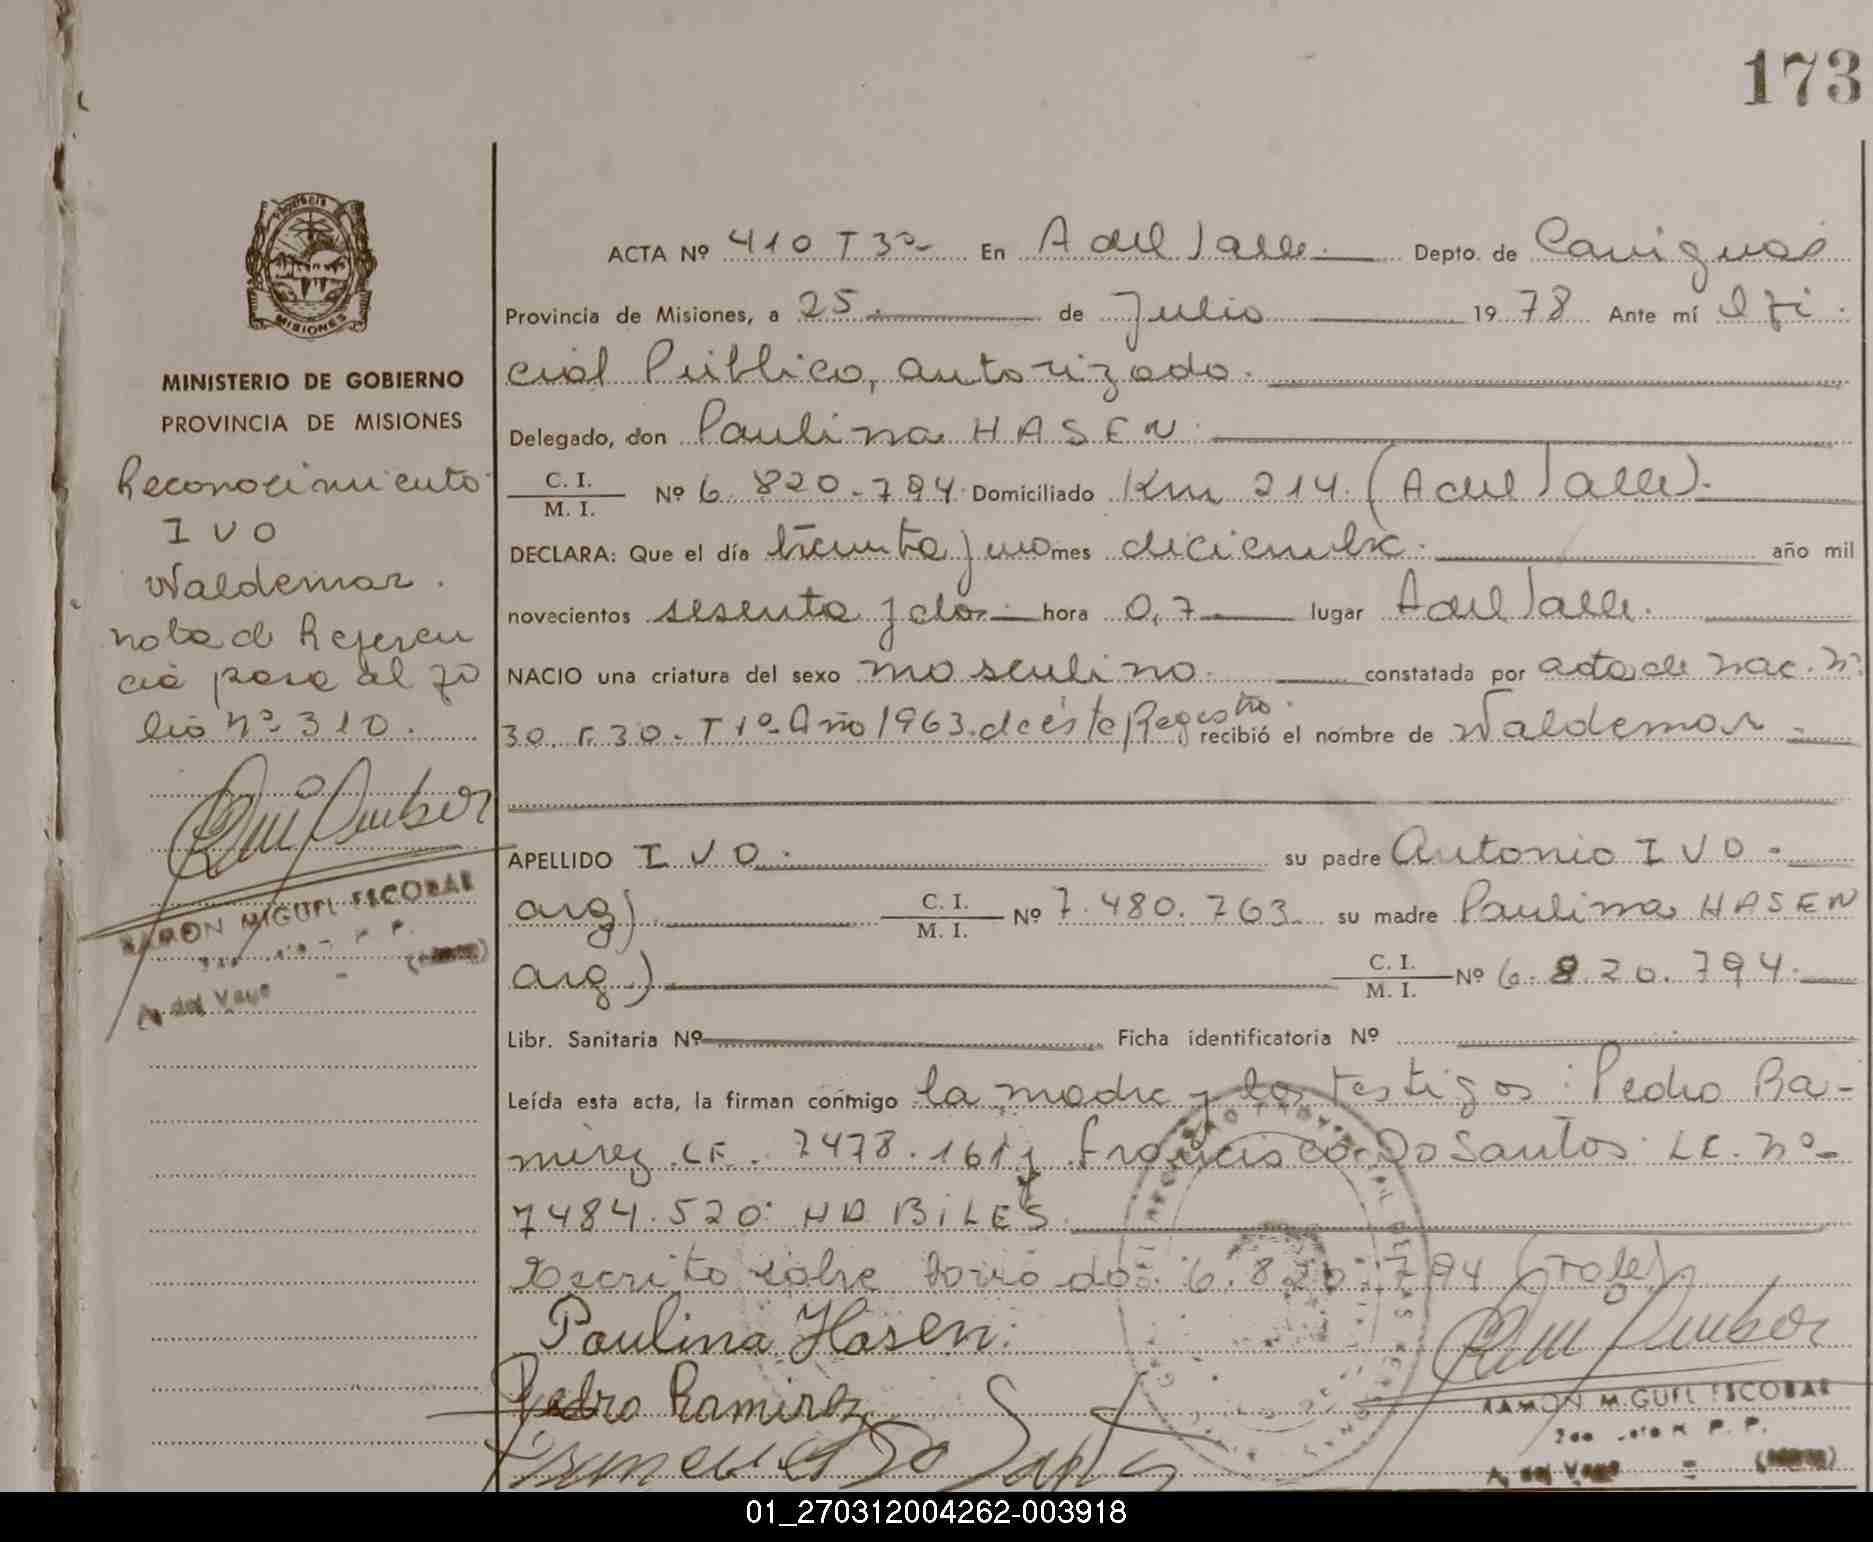 173
PROVINCIA
MISIONES
MINISTERIO DE GOBIERNO
PROVINCIA DE MISIONES
Reconocimiento
IVO
Waldemar.
nota de Referen
cia pasa al fo
lio Nº 310.
RAMON MIGUEL ESCOBAR
A. del Valle
ACTA Nº 410 T 3º- En A del Valle. Depto. de Cainguás
Provincia de Misiones, a 25. de Julio 1978 Ante mí Ofi
cial Público, autorizado.
Delegado, don Paulina HASEN.
C. I.
M. I.
Nº 6.820.794. Domiciliado Km 214. (A del Valle).
DECLARA: Que el día treinta y uno mes diciembre. año mil
novecientos sesenta y dos. hora 0,7 lugar A del Valle.
NACIO una criatura del sexo masculino. constatada por acta de nac. Nº
30. F. 30. T 1º. Año 1963. de éste Registro. recibió el nombre de Waldemar.
APELLIDO IVO. su padre Antonio IVO.
arg). C. I.
M. I.
Nº 7.480.763 su madre Paulina HASEN
arg.) C. I.
M. I.
Nº 6.820.794.
Libr. Sanitaria Nº Ficha identificatoria Nº
Leída esta acta, la firman conmigo la madre y los testigos: Pedro Ra-
mirez LE. 7478.161 y Francisco Do Santos LE. nº-
7484.520: HABILES.
Escrito sobre borrado: 6.820.794 (vale).
Paulina Hasen.
Pedro Ramirez
RAMON MIGUEL ESCOBAR
A. del Valle
01_270312004262-003918